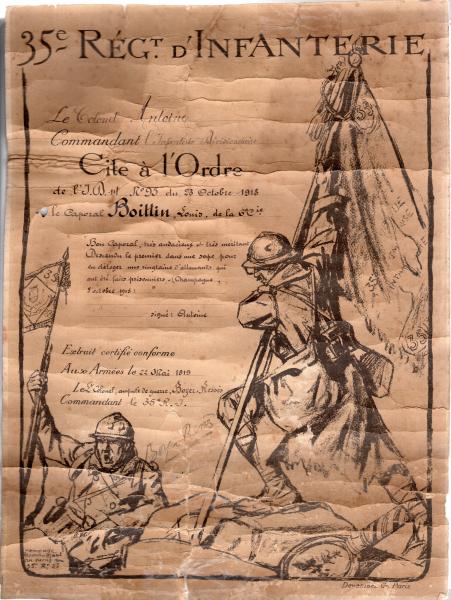 35e RÉGT. D'INFANTERIE
Le Colonel Antoine
Commandant l'Infanterie Divisionnaire
Cite à l'Ordre
de l'I.D. N° 93 du 23 Octobre 1918
le Caporal Boittin, Louis, de la 6e Cie
Bon Caporal, très audacieux et très méritant
Descendu le premier dans une sape pour
en déloger une vingtaine d'allemands qui
ont été faits prisonniers "Champagne,
Octobre 1918:
signé: Antoine
Extrait certifié conforme
Aux Armées le 22 Mai 1919
Le Lt Colonel, de guerre, Boyer
Commandant le 35e R.I.
35
35
35
Devambez Gr. Paris